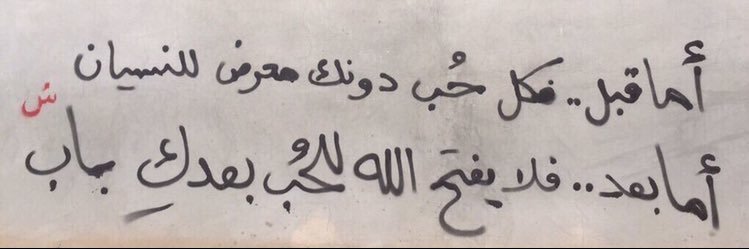 أما قبل .. فكل حُب دونك معرض للنسيان
ش
أما بعد .. فلا يفتح الله للحُب بعدكِ باب